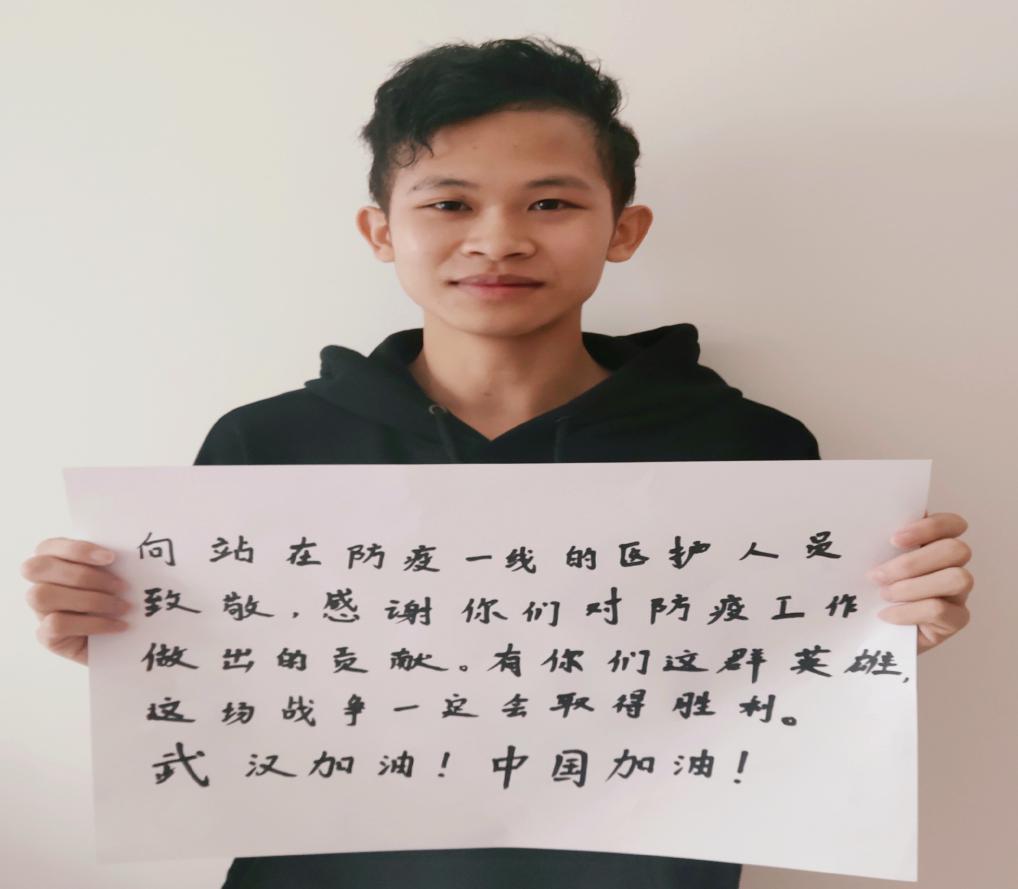 向站在防疫一线的医护人员
致敬，感谢你们对防疫工作
做出的贡献。有你们这群英雄，
这场战争一定会取得胜利。
武汉加油！中国加油！